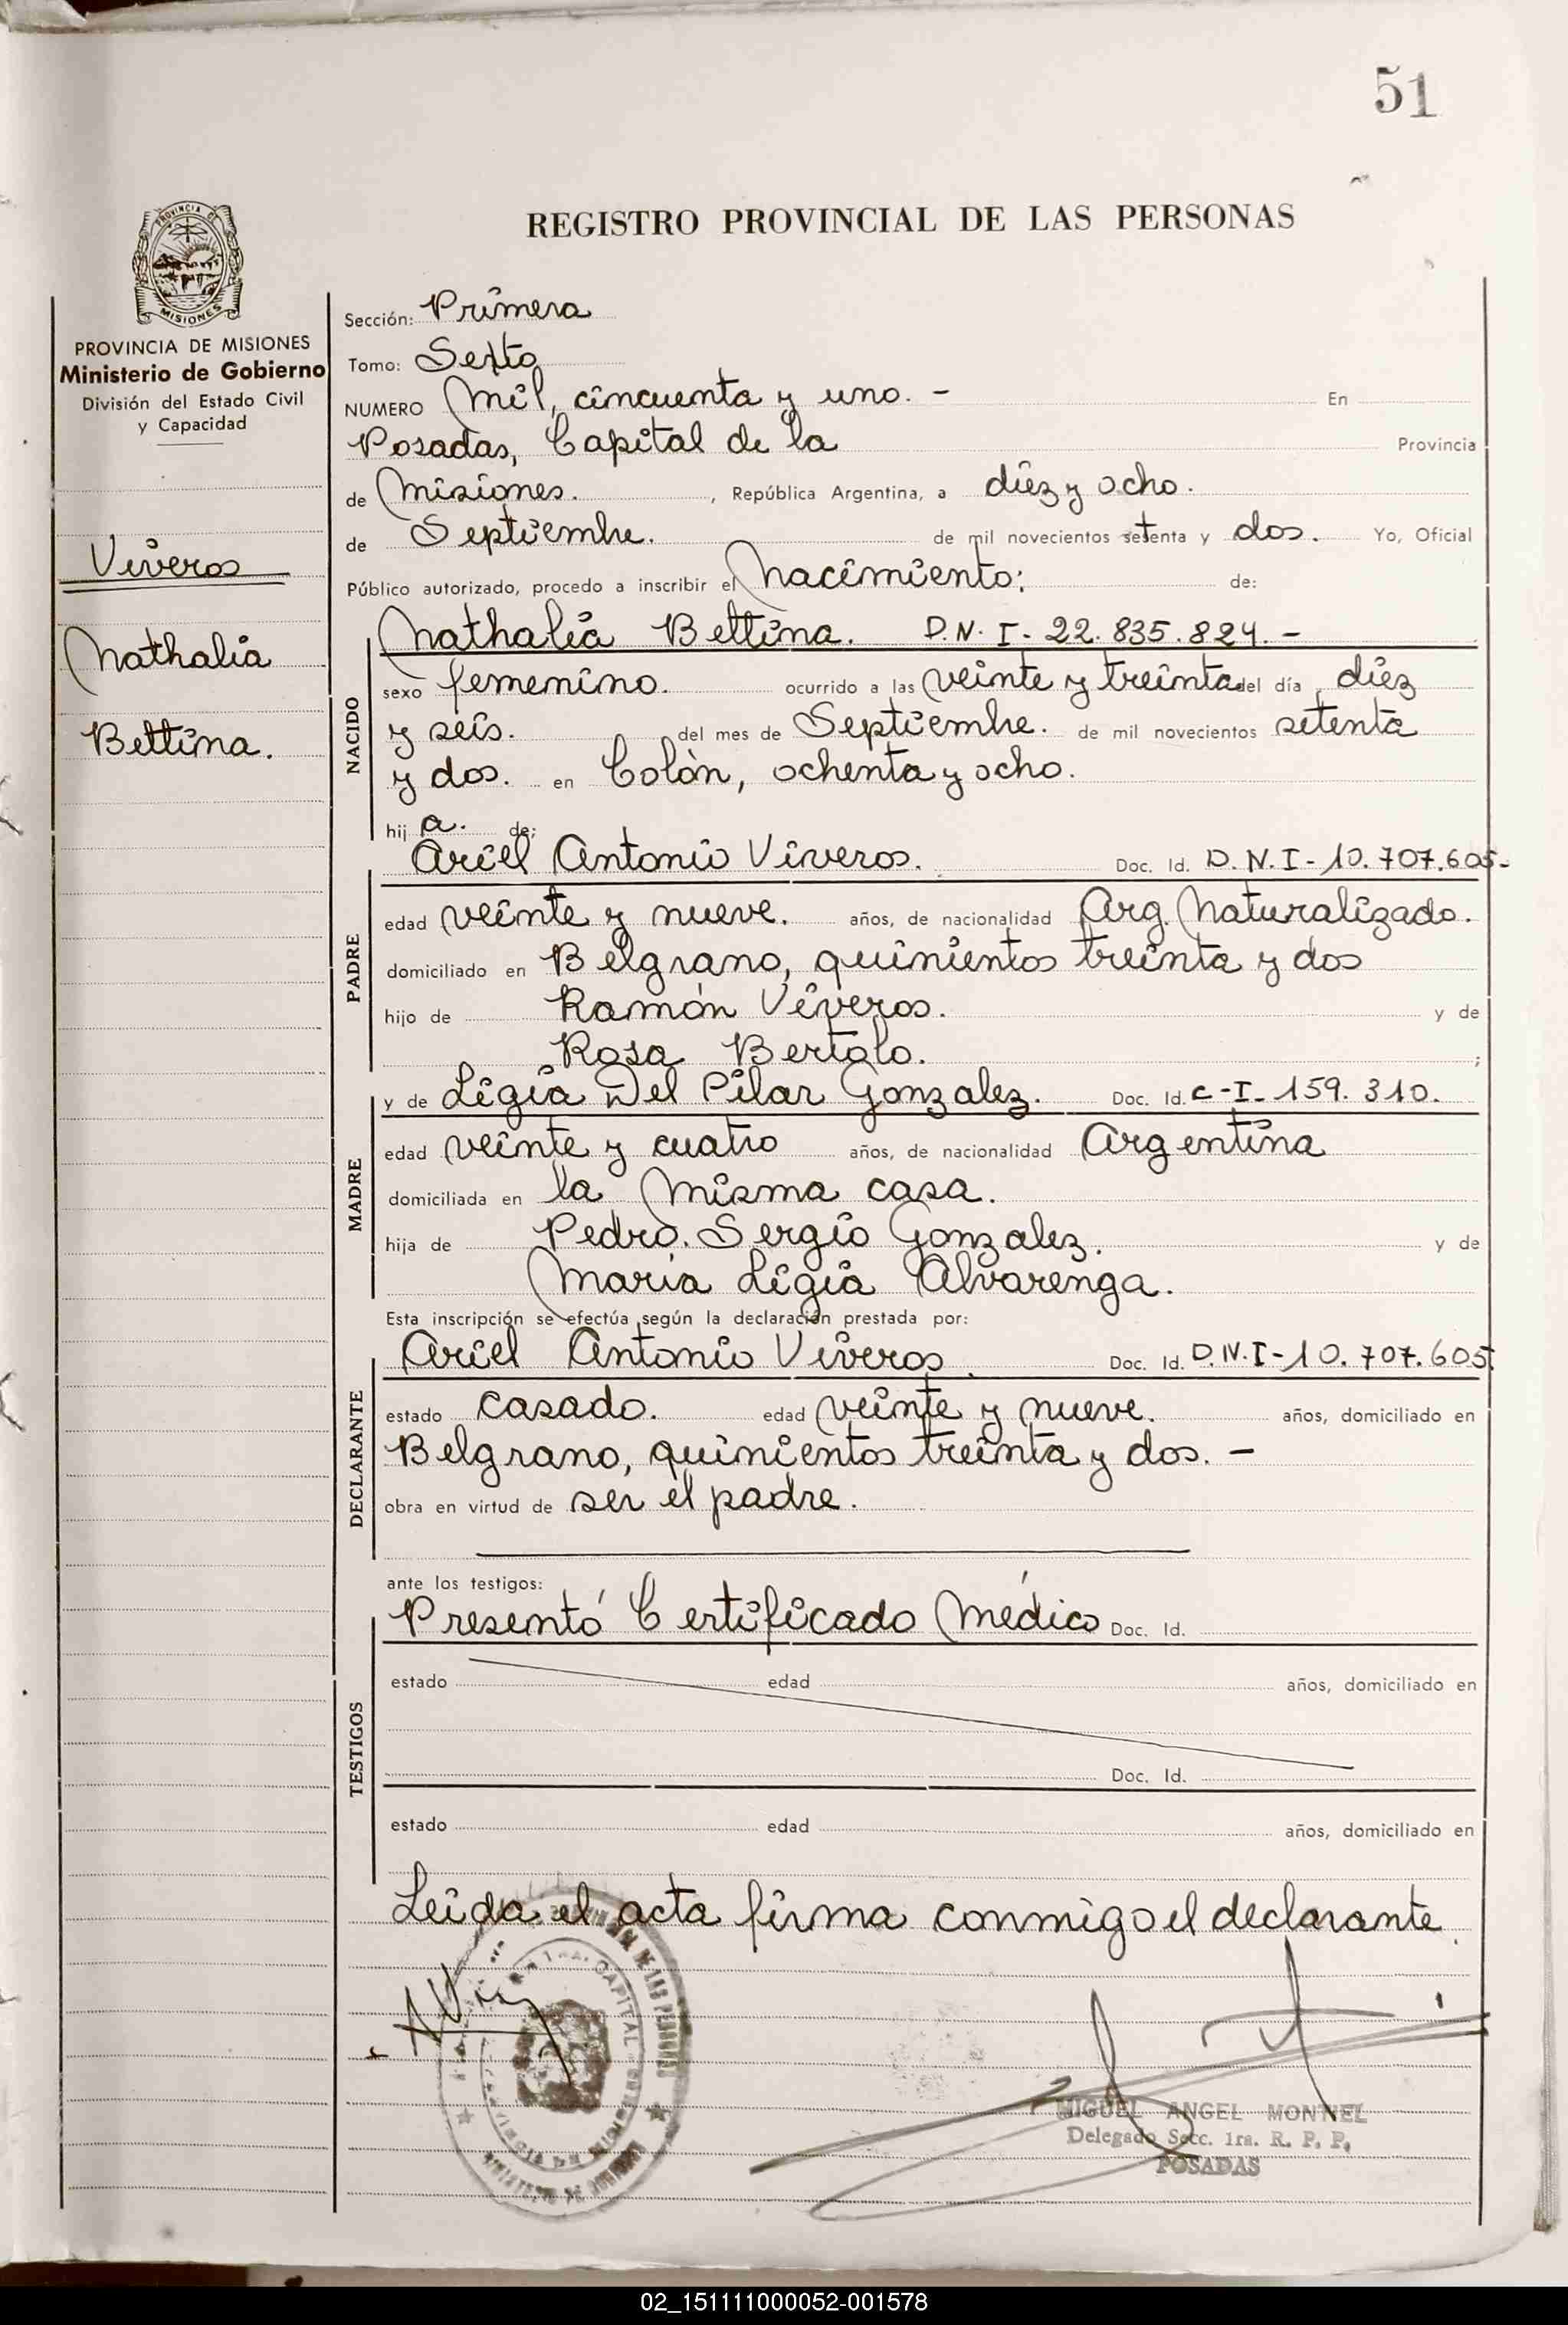 51
REGISTRO PROVINCIAL DE LAS PERSONAS
PROVINCIA DE MISIONES
Ministerio de Gobierno
División del Estado Civil
y Capacidad
Viveros
Nathalia
Bettina.
Sección: Primera
Tomo: Sexto
NUMERO Mil, cincuenta y uno. - En
Posadas, Capital de la Provincia
de Misiones. , República Argentina, a diez y ocho.
de Septiembre. de mil novecientos setenta y dos. Yo, Oficial
Público autorizado, procedo a inscribir el Nacimiento: de:
NACIDO
Nathalia Bettina. D.N.I- 22.835.824. -
sexo femenino. ocurrido a las veinte y treinta del día diez
y seis. del mes de Septiembre. de mil novecientos setenta
y dos. en Colòn, ochenta y ocho.
hij a. de:
PADRE
Ariel Antonio Viveros. Doc. Id. D.N.I- 10.707.605-
edad veinte y nueve. años, de nacionalidad Arg. Naturalizado.
domiciliado en Belgrano, quinientos treinta y dos
hijo de Ramón Viveros. y de
Rosa Bertolo. ;
MADRE
y de Ligia Del Pilar Gonzalez. Doc. Id. C-I- 159.310.
edad veinte y cuatro años, de nacionalidad Argentina
domiciliada en la misma casa.
hija de Pedro. Sergio Gonzalez. y de
María Ligia Alvarenga.
Esta inscripción se efectúa según la declaración prestada por:
DECLARANTE
Ariel Antonio Viveros Doc. Id. D.N.I-10.707.605.
estado casado. edad veinte y nueve. años, domiciliado en
Belgrano, quinientos treinta y dos. -
obra en virtud de ser el padre.
ante los testigos:
TESTIGOS
Presentó Certificado Médico Doc. Id.
estado edad años, domiciliado en
Doc. Id.
estado edad años, domiciliado en
Leida el acta firma conmigo el declarante.
MIGUEL ANGEL MONTIEL
Delegado Secc. 1ra. R. P. P.
POSADAS
02_151111000052-001578